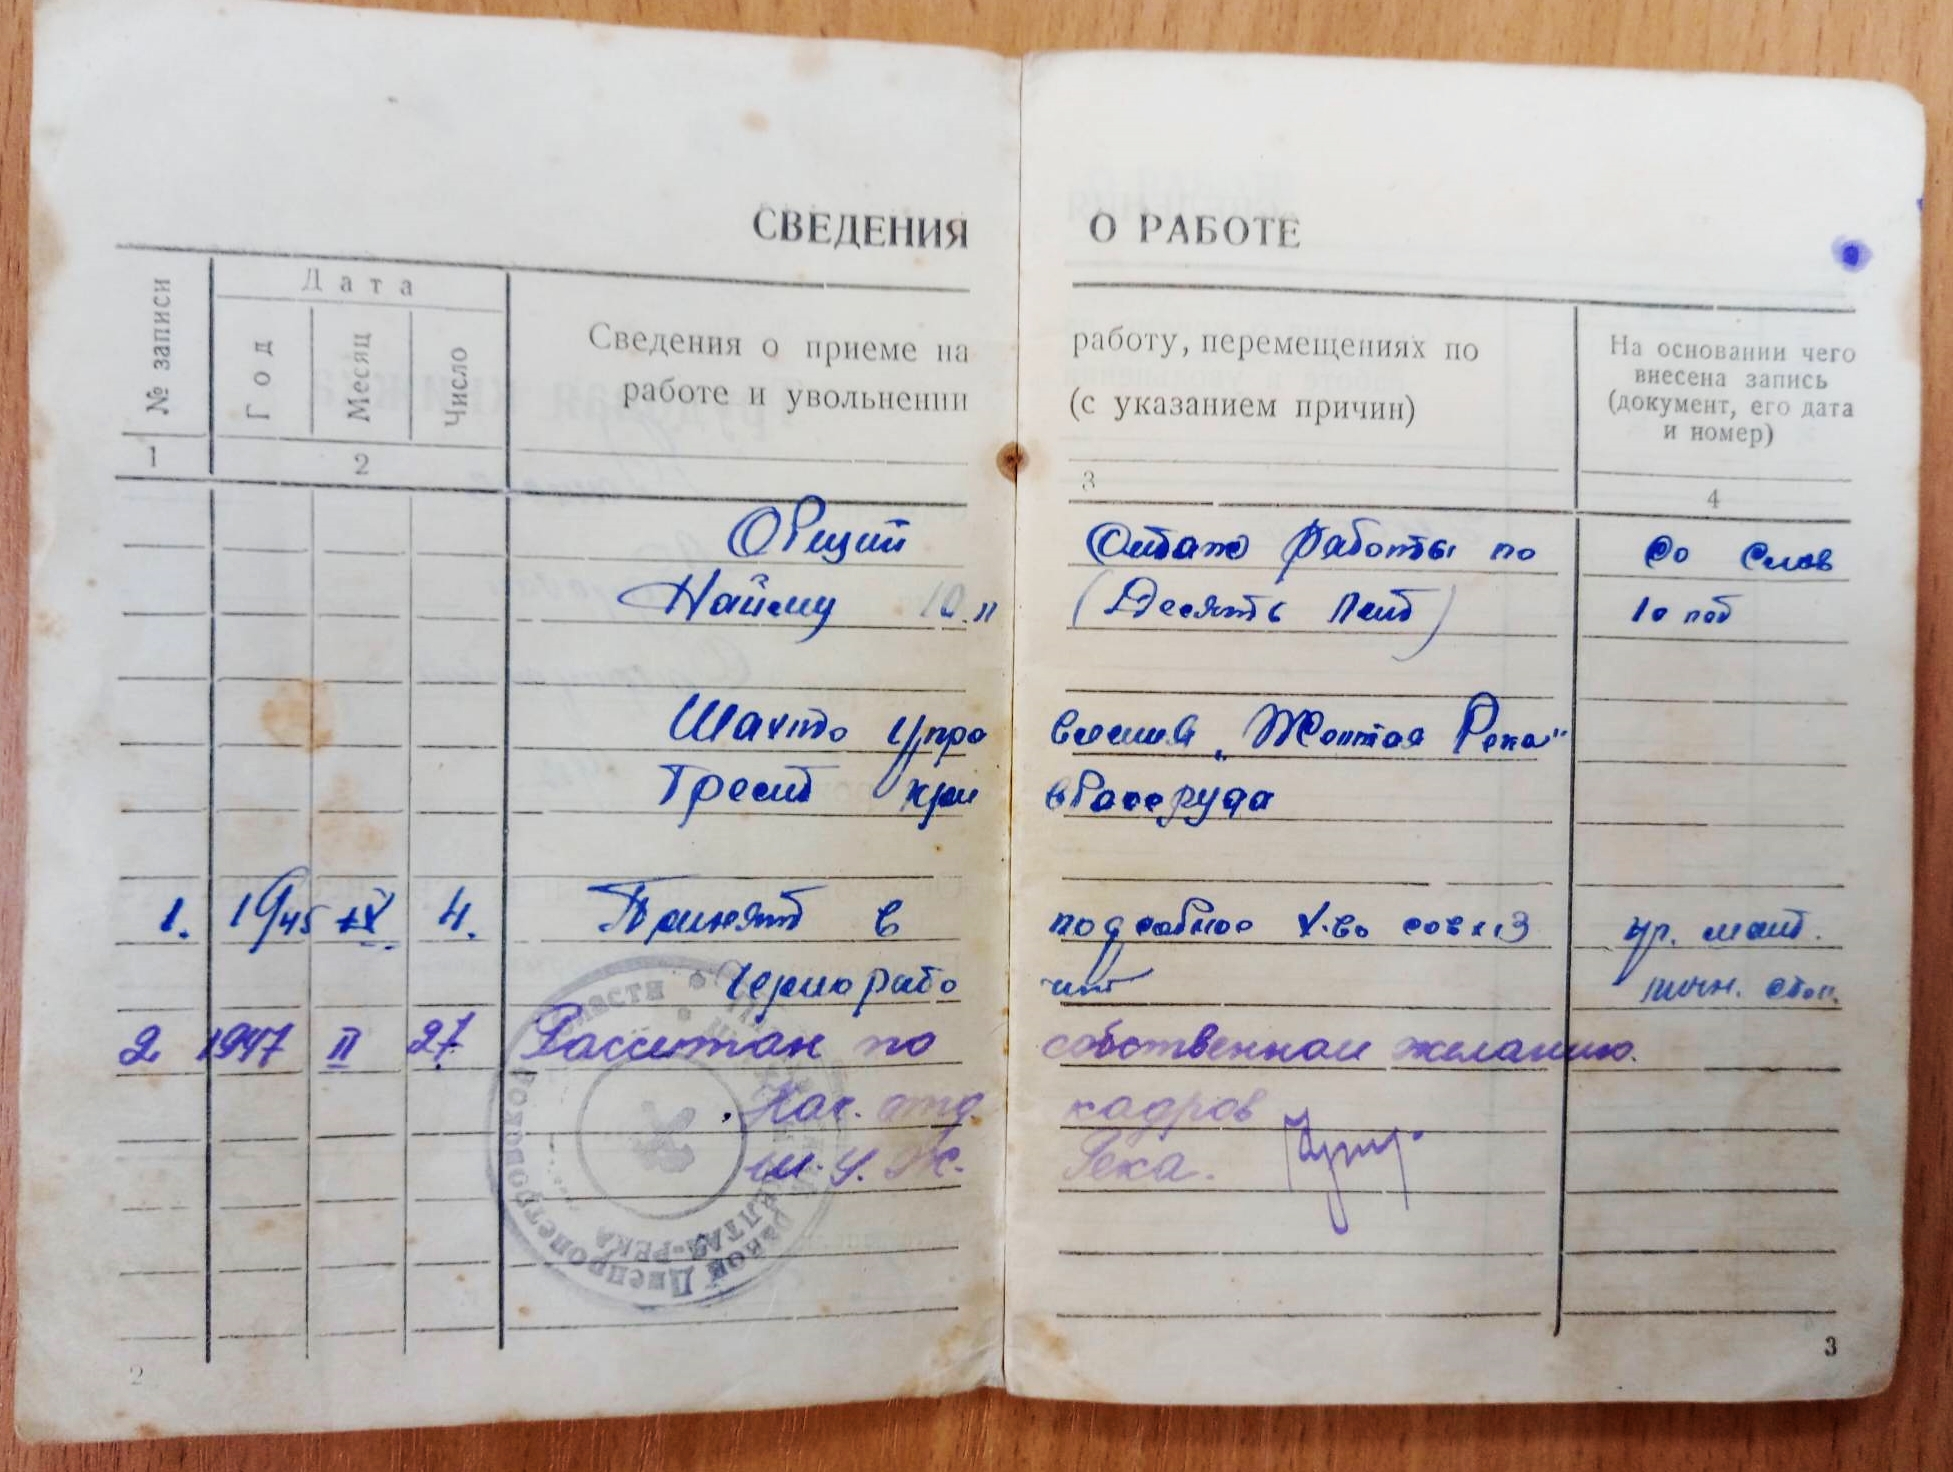 СВЕДЕНИЯ О РАБОТЕ
№ записи
Дата
Год
Месяц
Число
Сведения о приеме на работу, перемещениях по
работе и увольнении (с указанием причин)
На основании чего
внесена запись
(документ, его дата
и номер)
1 2 3 4
Общий Стаж работы по Со слов
Найму 10 л (Десять лет)
Шахто Упра вления „Жолтая Река"
Трест Кри вбассруда
1. 1945 IX 4. Принят в подсобное х-во совхоз
Чернорабо чим
2 1947 II 27. Рассчитан по собственном желанию.
Нач. отд. кадров
Ш. У. Ж. Река.
ЖЕЛТАЯ-РЕКА
Днепропетровской области
2
3